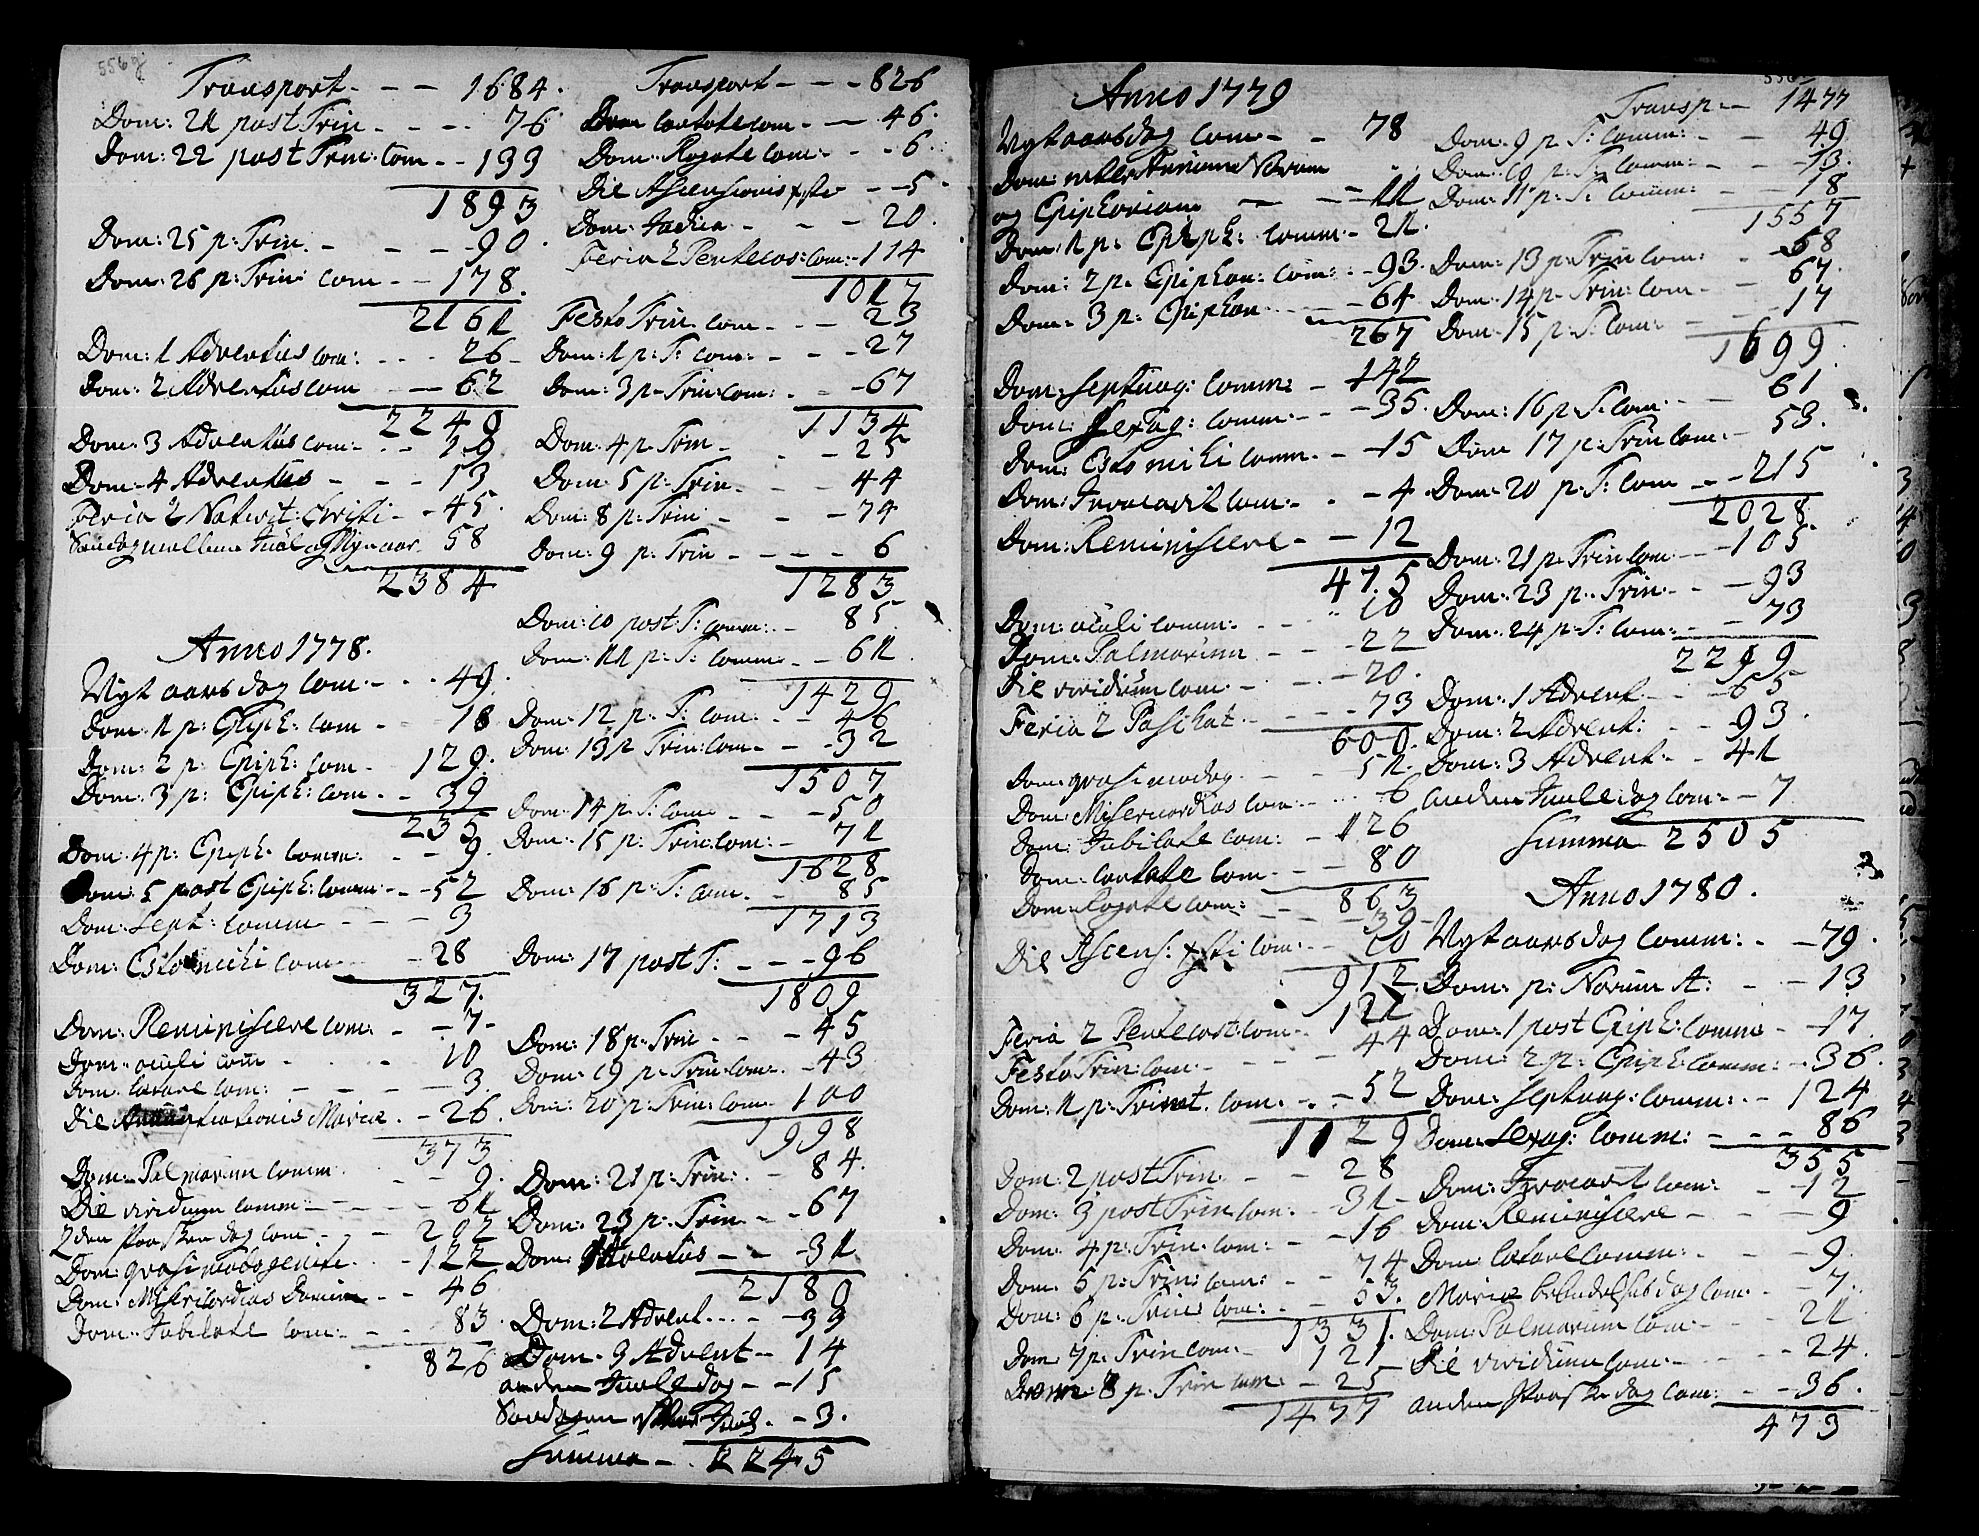 Transport - - - 1684.
Dom: 21 post Trin - - - 76
Dom: 22 post Trin: Com - - 133
1893
Dom: 25 p: Trin. - - - 90.
Dom: 26 p: Trin: com - - 178.
2161
Dom: 1 Adventus com: - - - 26 -
Dom: 2 Adventus com - - 62
2249
Dom: 3 Adventus com: - - 19
Dom: 4 Adventus - - - 13
Feria 2 Nativit: Christi - - 45.
Søndag mellem Juul og Nyaar. 58
2384
Anno 1778.
Nyt aarsdag Com - - - 49.
Dom: 1 p: Epiph: com - - 18
Dom: 2 p: Epiph: com - 129.
Dom: 3 p: Epiph: com - - 39
235
Dom: 4 p: Epiph: comm: - - 9.
Dom: 5 post Epiph: comm: - - 52
Dom: Sept: comm - - - 3
Dom: Esto mihi com - - 28
327.
Dom: Reminiscere com: - - 7-
Dom: oculi com - - 10
Dom: Lætare com: - - - 3.
Die Annuntiationis Mariæ. - 26.
373
Dom: Palmarum comm - - 9.
Die viridium comm - - - 61
2den Paaskedag com - - 202
Dom: quasimodogeniti - - 122
Dom: Misericordias Domini - - 46
Dom: Jubilate com: - - 83.
826
Transport - - - 826
Dom Cantate com - - 46.
Dom: Rogate Com: - - - 6.
Die Ascensionis Xsti - - 5.
Dom: Exaudi - - - 20.
Feria 2 Pentecos: com: - 114
1017
Festo Trin: com - - - 23
Dom: 1 p: T: com: - - - 27
Dom: 3 p. Trin: com: - - 67
1134
Dom: 4 p: Trin - - - 25
Dom: 5 p: Trin - - - 44
Dom: 8 p: Trin - - - 74
Dom: 9 p: Trin - - - - 6
1283
Dom: 10 post: T: comm: - - 85.
Dom: 11 p: T: comm - - 61.
1429
Dom: 12 p: T: com: - - 46
Dom: 13 p Trin: com - - 32
1507
Dom: 14 p: T: com - - - 50
Dom: 15 p: Trin: com: - 71
1628
Dom: 16 p: T: com. - - 85
1713
Dom: 17 post T: - - - 96
1809
Dom: 18 p: Trin - - - 45
Dom: 19 p: Trin: com. - 43
Dom: 20 p: Trin: com - 100
1998
Dom: 21 p: Trin: - - 84.
Dom: 23 p: Trin - - 67
Dom: 1 Adventus - - - 31.
2180
Dom: 2 Advent. - - - 33
Dom: 3 Advent - 14
anden Juule dag - - 15
Søndagen efter Juul. - 3.
Summa - . 2245
Anno 1779
Nyt aarsdag com - - 78
Dom: inter Annum Novum
og Epiphaniam - - - 11
Dom: 1 p: Epiph: comm - 21.
Dom: 2 p. Epiphan: com: - 93.
Dom: 3 p: Epiphan - - - 64
267
Dom: Septuag: comm: - 142
Dom: Sexag: comm: - - 35.
Dom: Esto mihi comm - - 15
Dom: Invocavit com: - - 4
Dom: Reminiscere - - 12
475
Dom: oculi comm: - - 10
Dom: Palmarum - - - 22
Die viridium com: - - - 20.
Feria 2 Paschat. - - - 73
600.
Dom: quasimodog. - - - 51.
Dom: Misericordias com: - - - 6
Dom: Jubilate com: - 126
Dom: Cantate com - - - 80
863
Dom: Rogate com: - - 39 -
Die Ascens: Xsti com: - - 10
912.
Feria 2 Pentecost: com - 121
Festo Trin: com - - - 44
Dom: 1 p: Trinit. com: - - 52
1129
Dom: 2 post Trin. - - 28
Dom: 3 post Trin com: - 31 -
Dom: 4 p: Trin: com: - - 16
Dom: 5 p: Trin: com: - - 74
Dom: 6 p. Trin: com: - - 53.
1331.
Dom: 7 p: Trin com - 121 -
Dom: 8 p: Trin com - - 25 -
1477
Transp - - 1477
Dom: 9 p T: comm: - - 49
Dom: 10 p T: comm: - - 13.
Dom: 11 p. T: comm: - - 18
1557
Dom: 13 p: Trin com: - 58
Dom: 14 p: Trin: com - - 67.
Dom: 15 p: T: com: - - 17
1699
Dom: 16 p T: com: - - 61
Dom: 17 p: Trin com: - 53.
Dom: 20 p: T: com - - 215
2028.
Dom: 21 p: Trin com: - - 105
Dom: 23 p. Trin: - - 93
Dom: 24 p T: com: - - 73
2299
Dom: 1 Advent: - - 65
Dom: 2 Advent: - - 93.
Dom: 3 Advent - - 41
anden Juule dag com: - 7
Summa 2505
Anno 1780.
Nyt aarsdag comm: - - 79.
Dom: p: Novum A: - - 13
Dom: 1 post Epiph: comm - 17
Dom: 2 p: Epiph: comm: - 36.
Dom: Septuag: comm: - 124
Dom: Sexag: comm: - - - 86
355
Dom: Invocavit com: - 12
Dom: Reminiscere - - - 9
Dom: Lætare comm: - - 9.
Mariæ bebudelses dag com: - 7.
Dom: Palmarum com: - - 21
Die viridium com - - - 24.
anden Paaskedag com: - - 36.
473